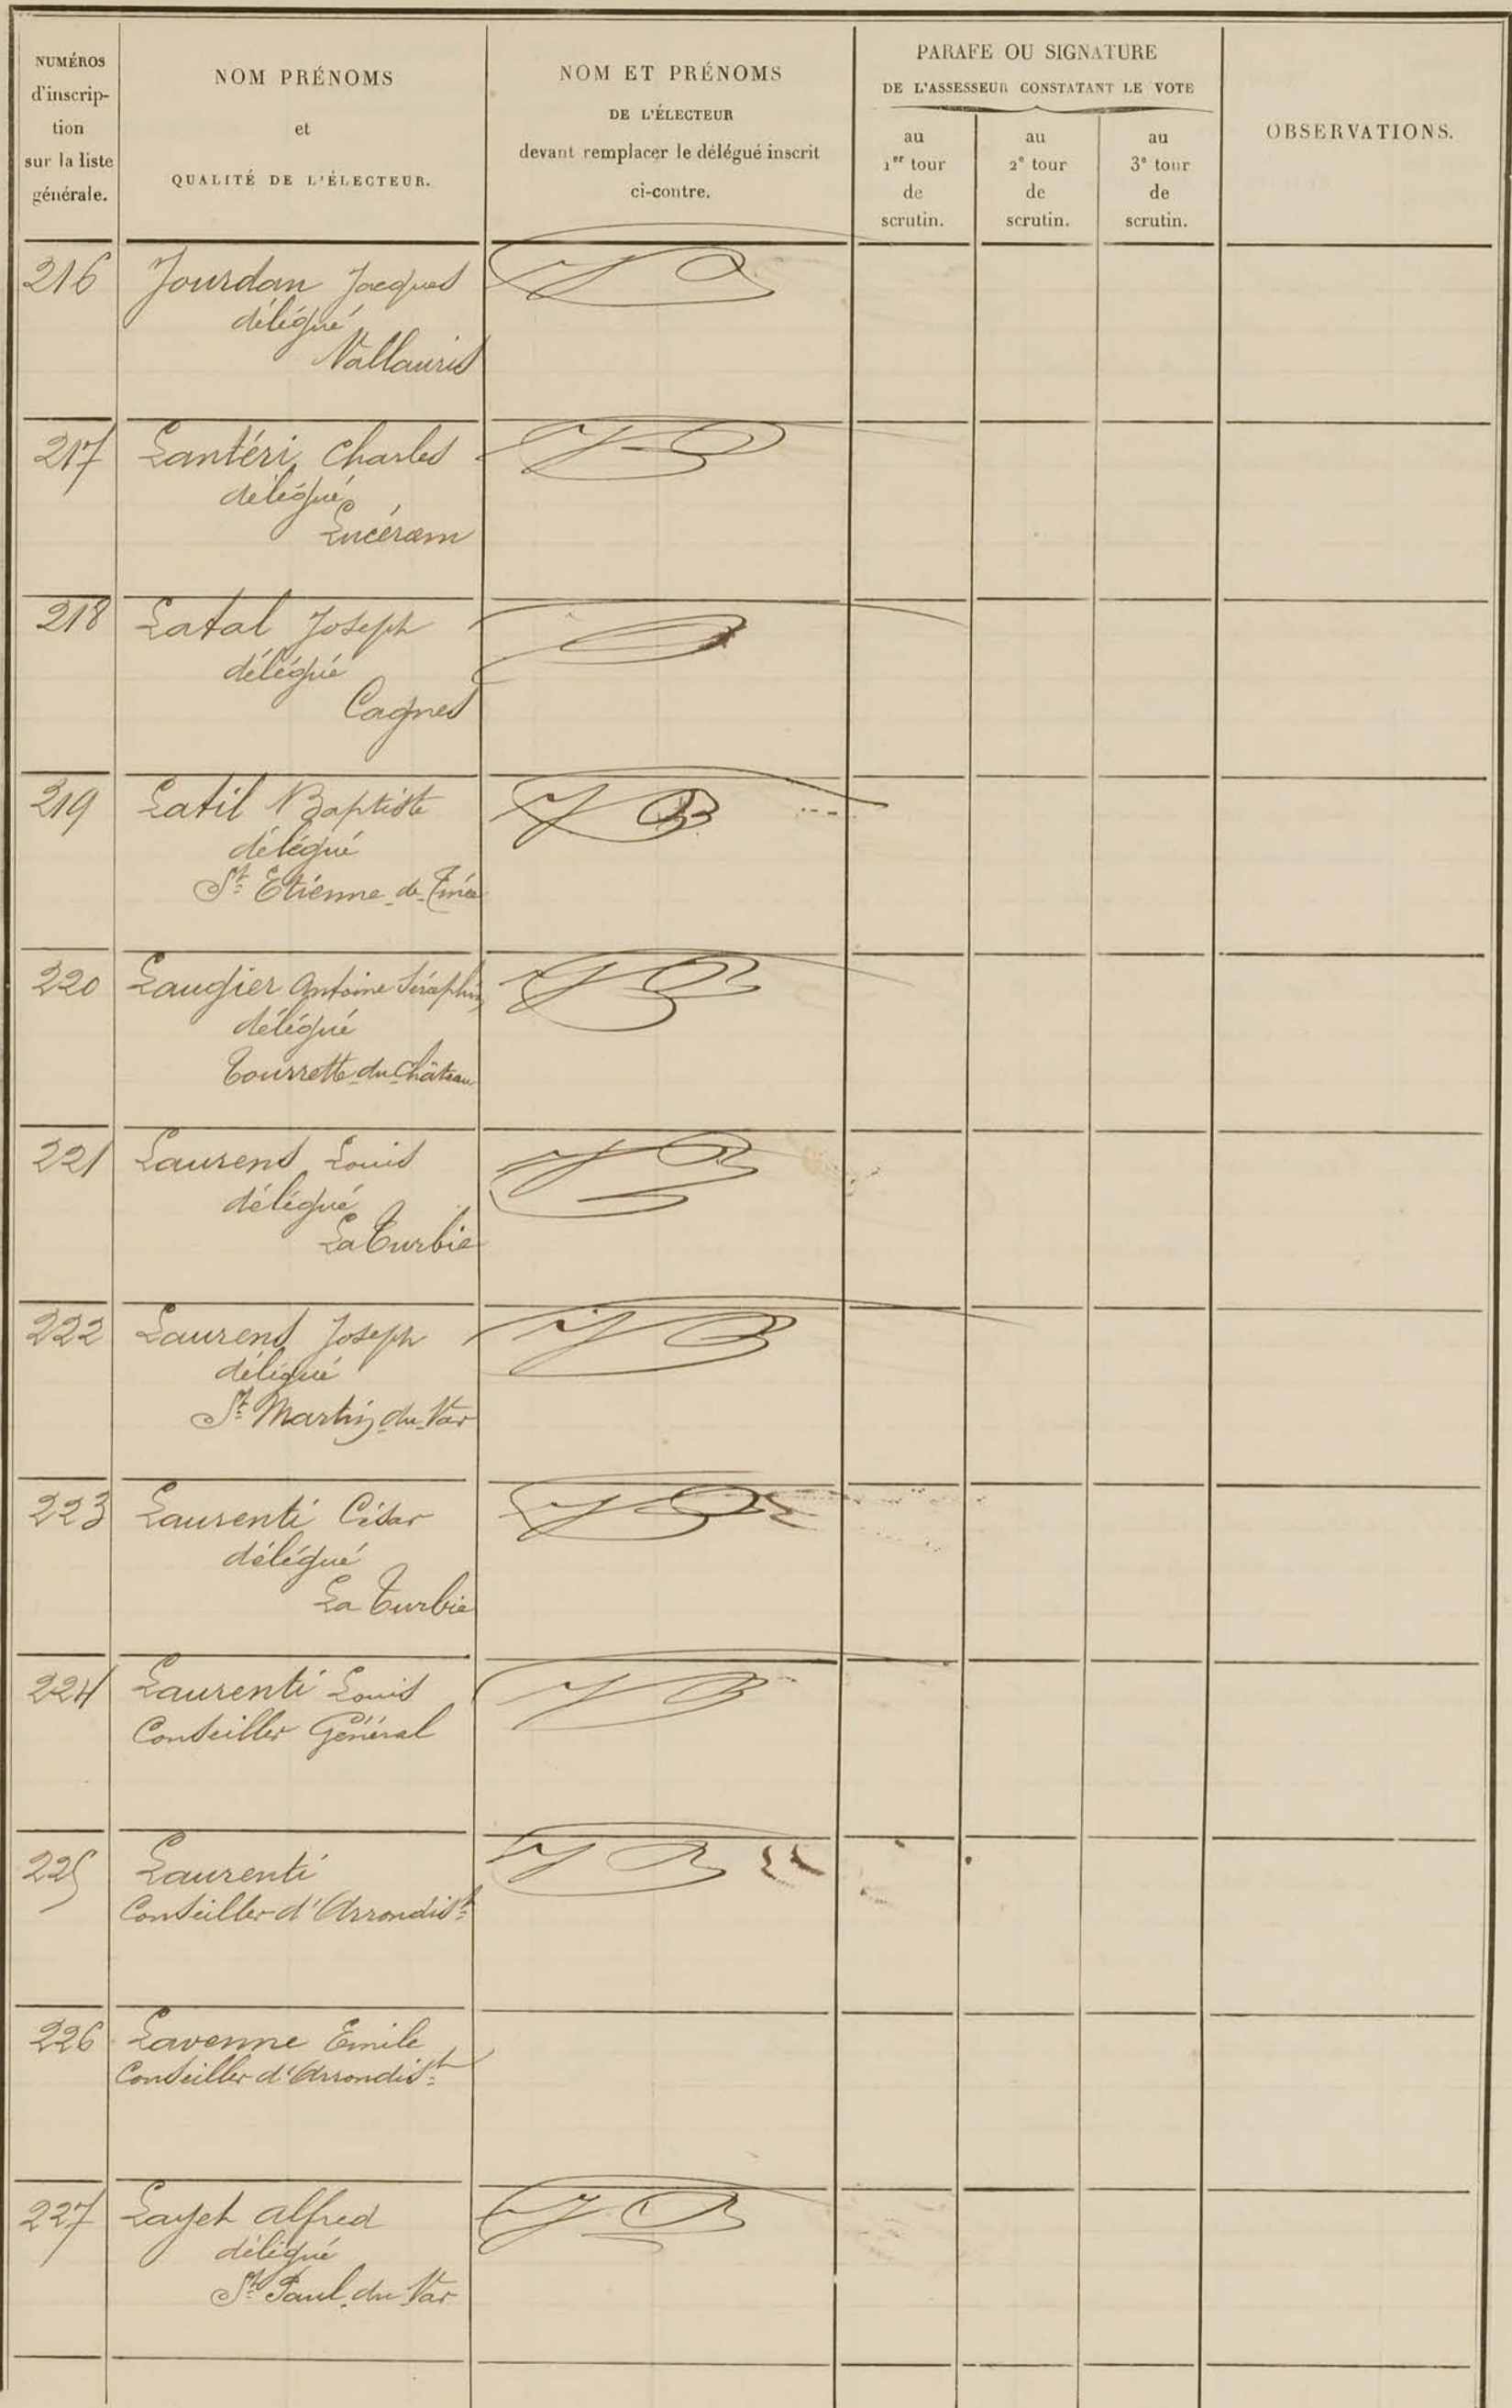 NUMÉROS
d'inscrip-
tion
sur la liste
générale.
NOM PRÉNOMS
et
QUALITÉ DE L'ÉLECTEUR.
NOM ET PRÉNOMS
DE L'ÉLECTEUR
devant remplacer le délégué inscrit
ci-contre.
PARAFE OU SIGNATURE
DE L'ASSESSEUR CONSTATANT LE VOTE
au
1er tour
de
scrutin.
au
2e tour
de
scrutin.
au
3e tour
de
scrutin.
OBSERVATIONS.
216 Jourdan Jacques
délégué
Vallauris
217 Lantéri Charles
délégué
Lucéram
218 Latal Joseph
délégué
Cagnes
219 Latil Baptiste
délégué
St Etienne-de-Tinée
220 Laugier Antoine Séraphin
délégué
Tourrette-du-Château
221 Laurens Louis
délégué
La Turbie
222 Laurens Joseph
délégué
St Martin-du-Var
223 Laurenti César
délégué
La Turbie
224 Laurenti Louis
Conseiller Général
225 Laurenti
Conseiller d'Arrondist
226 Lavenne Emile
Conseiller d'Arrondist
227 Layet Alfred
délégué
St Paul-du-Var